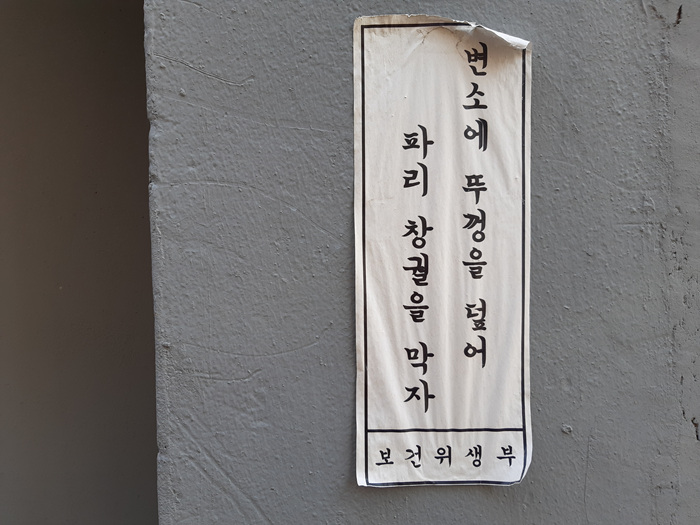 변소에 뚜껑을 덮어
파리 창궐을 막자
보건위생부